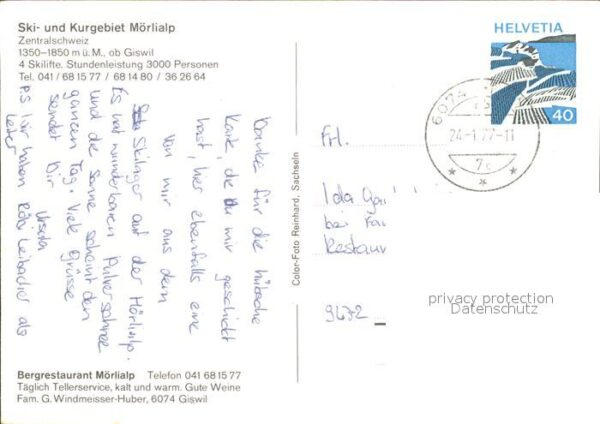 Ski- und Kurgebiet Mörlialp
Zentralschweiz
1350–1850 m ü.M., ob Giswil
4 Skilifte. Stundenleistung 3000 Personen
Tel. 041 / 68 15 77 / 68 14 80 / 36 26 64
Danke für die hübsche
Karte, die du mir geschickt
hast, hier ebenfalls eine
von mir aus dem
Skilager auf der Mörlialp.
Es hat wunderbaren Pulverschnee
und die Sonne scheint den
ganzen Tag. Viele Grüsse
sendet Dir
Ursula
PS Wir haben Leibacher als
Leiter
Bergrestaurant Mörlialp Telefon 041 68 15 77
Täglich Tellerservice, kalt und warm. Gute Weine
Fam. G. Windmeisser-Huber, 6074 Giswil
Color-Foto Reinhard, Sachseln
HELVETIA
40
6074
24-1.77-11
Frl.
Ida
bei
Restaur
9472
privacy protection
Datenschutz